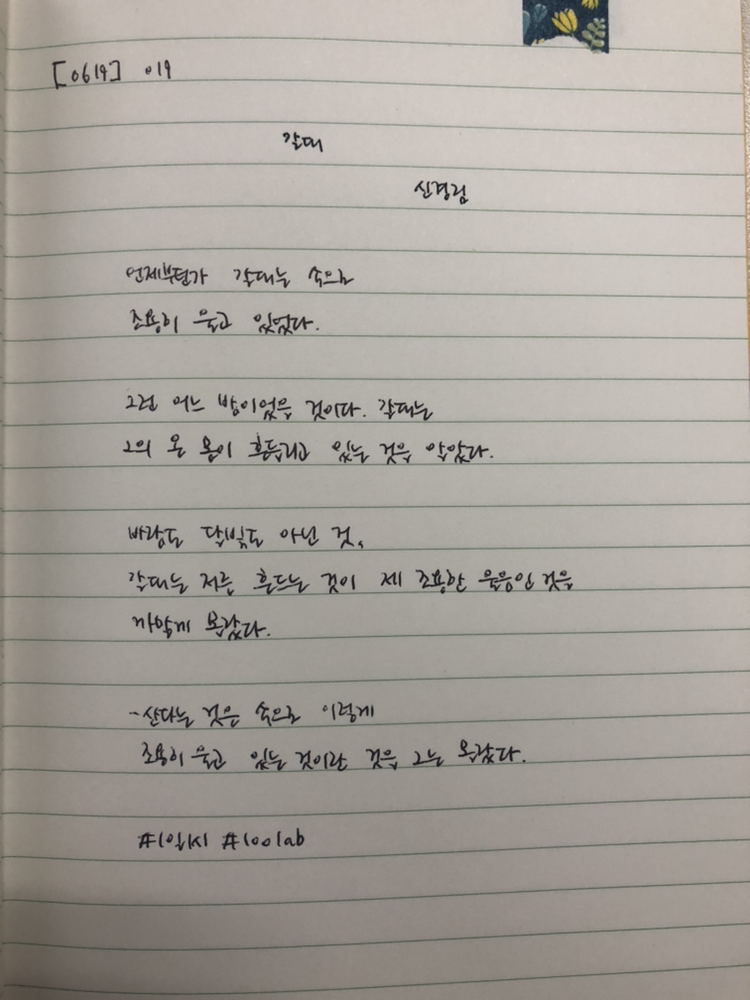 [0619] 019
갈대
신경림
언제부턴가 갈대는 속으로
조용히 울고 있었다.
그런 어느 밤이었을 것이다. 갈대는
그의 온 몸이 흔들리고 있는 것을 알았다.
바람도 달빛도 아닌 것,
갈대는 저를 흔드는 것이 제 조용한 울음인 것을
까맣게 몰랐다.
-산다는 것은 속으로 이렇게
조용히 울고 있는 것이란 것을 그는 몰랐다.
#1일1시 #100lab